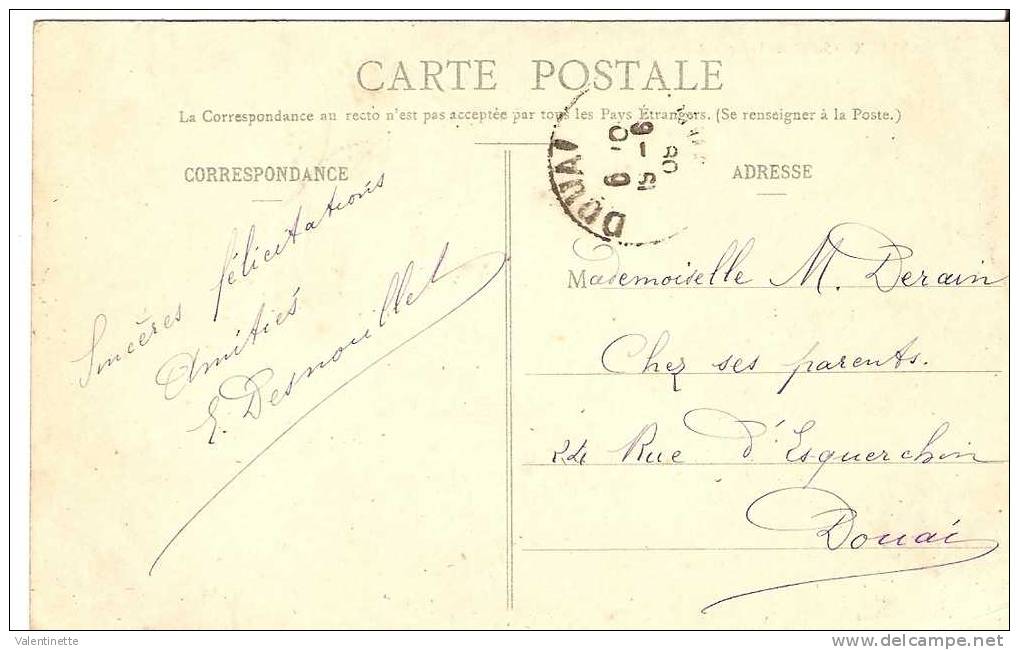 CARTE POSTALE
La Correspondance au recto n'est pas acceptée par tous les Pays Étrangers. (Se renseigner à la Poste.)
CORRESPONDANCE
ADRESSE
DOUAI
Sincères félicitations
Amitiés
E. Desnouillet
Mademoiselle M. Derain
Chez ses parents.
24 Rue d'Esquerchin
Douai
Valentinette
delcampe.net